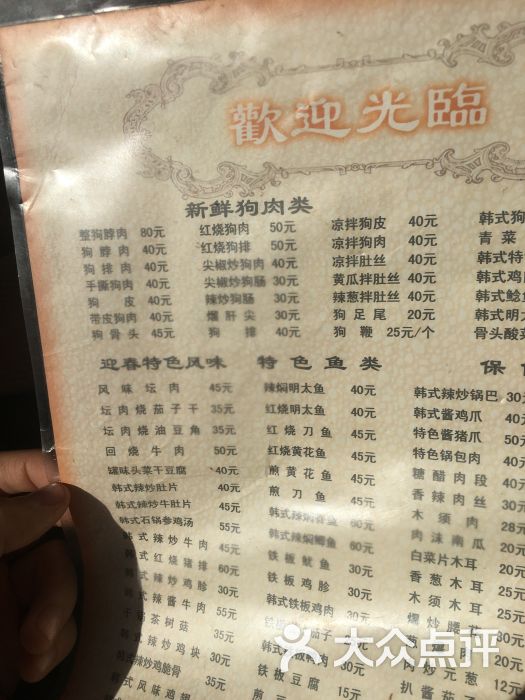 歡迎光臨
新鲜狗肉类
整狗脖肉 80元
狗脖肉 40元
狗排肉 40元
手撕狗肉 40元
狗皮 40元
带皮狗肉 40元
狗骨头 45元
红烧狗肉 50元
红烧狗排 50元
尖椒炒狗肉 40元
尖椒炒狗肠 30元
辣炒狗肠 30元
熘肝尖 30元
狗排 40元
凉拌狗皮 40元
凉拌狗肉 40元
凉拌肚丝 40元
黄瓜拌肚丝 40元
辣葱拌肚丝 40元
狗足尾 20元
狗鞭 25元/个
韩式狗
青菜
韩式特
韩式鸡
韩式鲶
韩式明太
骨头酸菜
迎春特色风味
风味坛肉 45元
坛肉烧茄子干 35元
坛肉烧油豆角 35元
回烧牛肉 50元
罐味头菜干豆腐 40元
韩式辣炒肚片 40元
韩式辣炒牛肚片 45元
韩式石锅参鸡汤 55元
韩式辣炒牛肉 45元
韩式红烧猪排 60元
韩式辣炒鸡胗 35元
韩式辣酱牛肉 55元
干锅茶树菇 35元
韩式辣炒鸡块 30元
韩式辣炒鸡脆骨 35元
韩式风味鸡翅
特色鱼类
辣焖明太鱼 40元
红烧明太鱼 40元
红烧刀鱼 45元
红烧黄花鱼 45元
煎黄花鱼 40元
煎刀鱼 40元
韩式辣焖鲶鱼 60元
韩式辣焖鲫鱼 60元
铁板鱿鱼 30元
铁板鸡胗 30元
韩式铁板鸡肉 30元
铁板茄子
韩式铁板肉 40元
铁板豆腐 15元
煎
保
韩式辣炒锅巴 30元
韩式酱鸡爪 40元
特色酱猪爪 50元
特色锅包肉 40元
糖醋肉段 40元
香辣肉丝 30元
木须肉 28元
肉沫南瓜 20元
白菜片木耳 20元
香葱木耳 25元
木须木耳 25元
爆炒腰花
葱爆肉
肉炒元葱 12元
扒酱茄子
大众点评